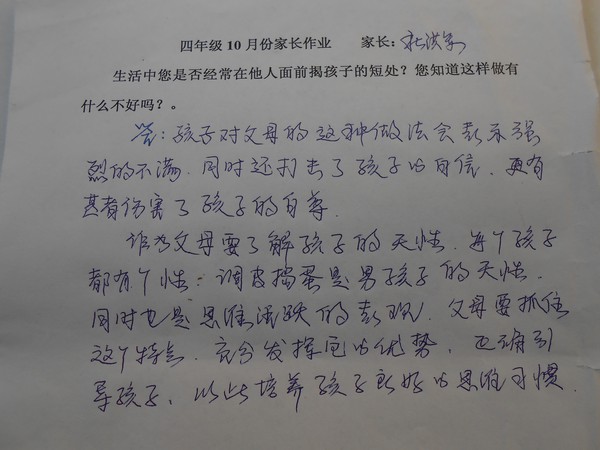 四年级10月份家长作业 家长：杜洪军
生活中您是否经常在他人面前揭孩子的短处？您知道这样做有
什么不好吗？。
答：孩子对父母的这种做法会表示强
烈的不满．同时还打击了孩子的自信．更有
甚者伤害了孩子的自尊．
作为父母要了解孩子的天性．每个孩子
都有个性：调皮捣蛋是男孩子的天性．
同时也是思维活跃的表现．父母要抓住
这个特点．充分发挥它的优势，正确引
导孩子，以此培养孩子良好的思维习惯．